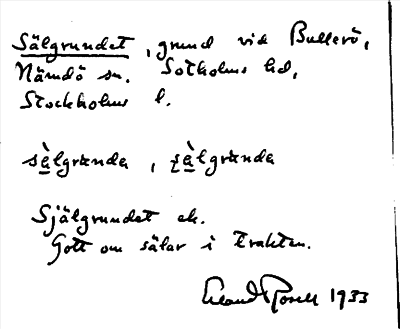 Sälgrundet, grund vid Bullerö,
Nämdö sn. Sotholms hd,
Stockholms l.
sàlgrənda, ʂàlgrənda
Själgrundet ek.
Gott om sälar i trakten.
Erland Rosell 1933